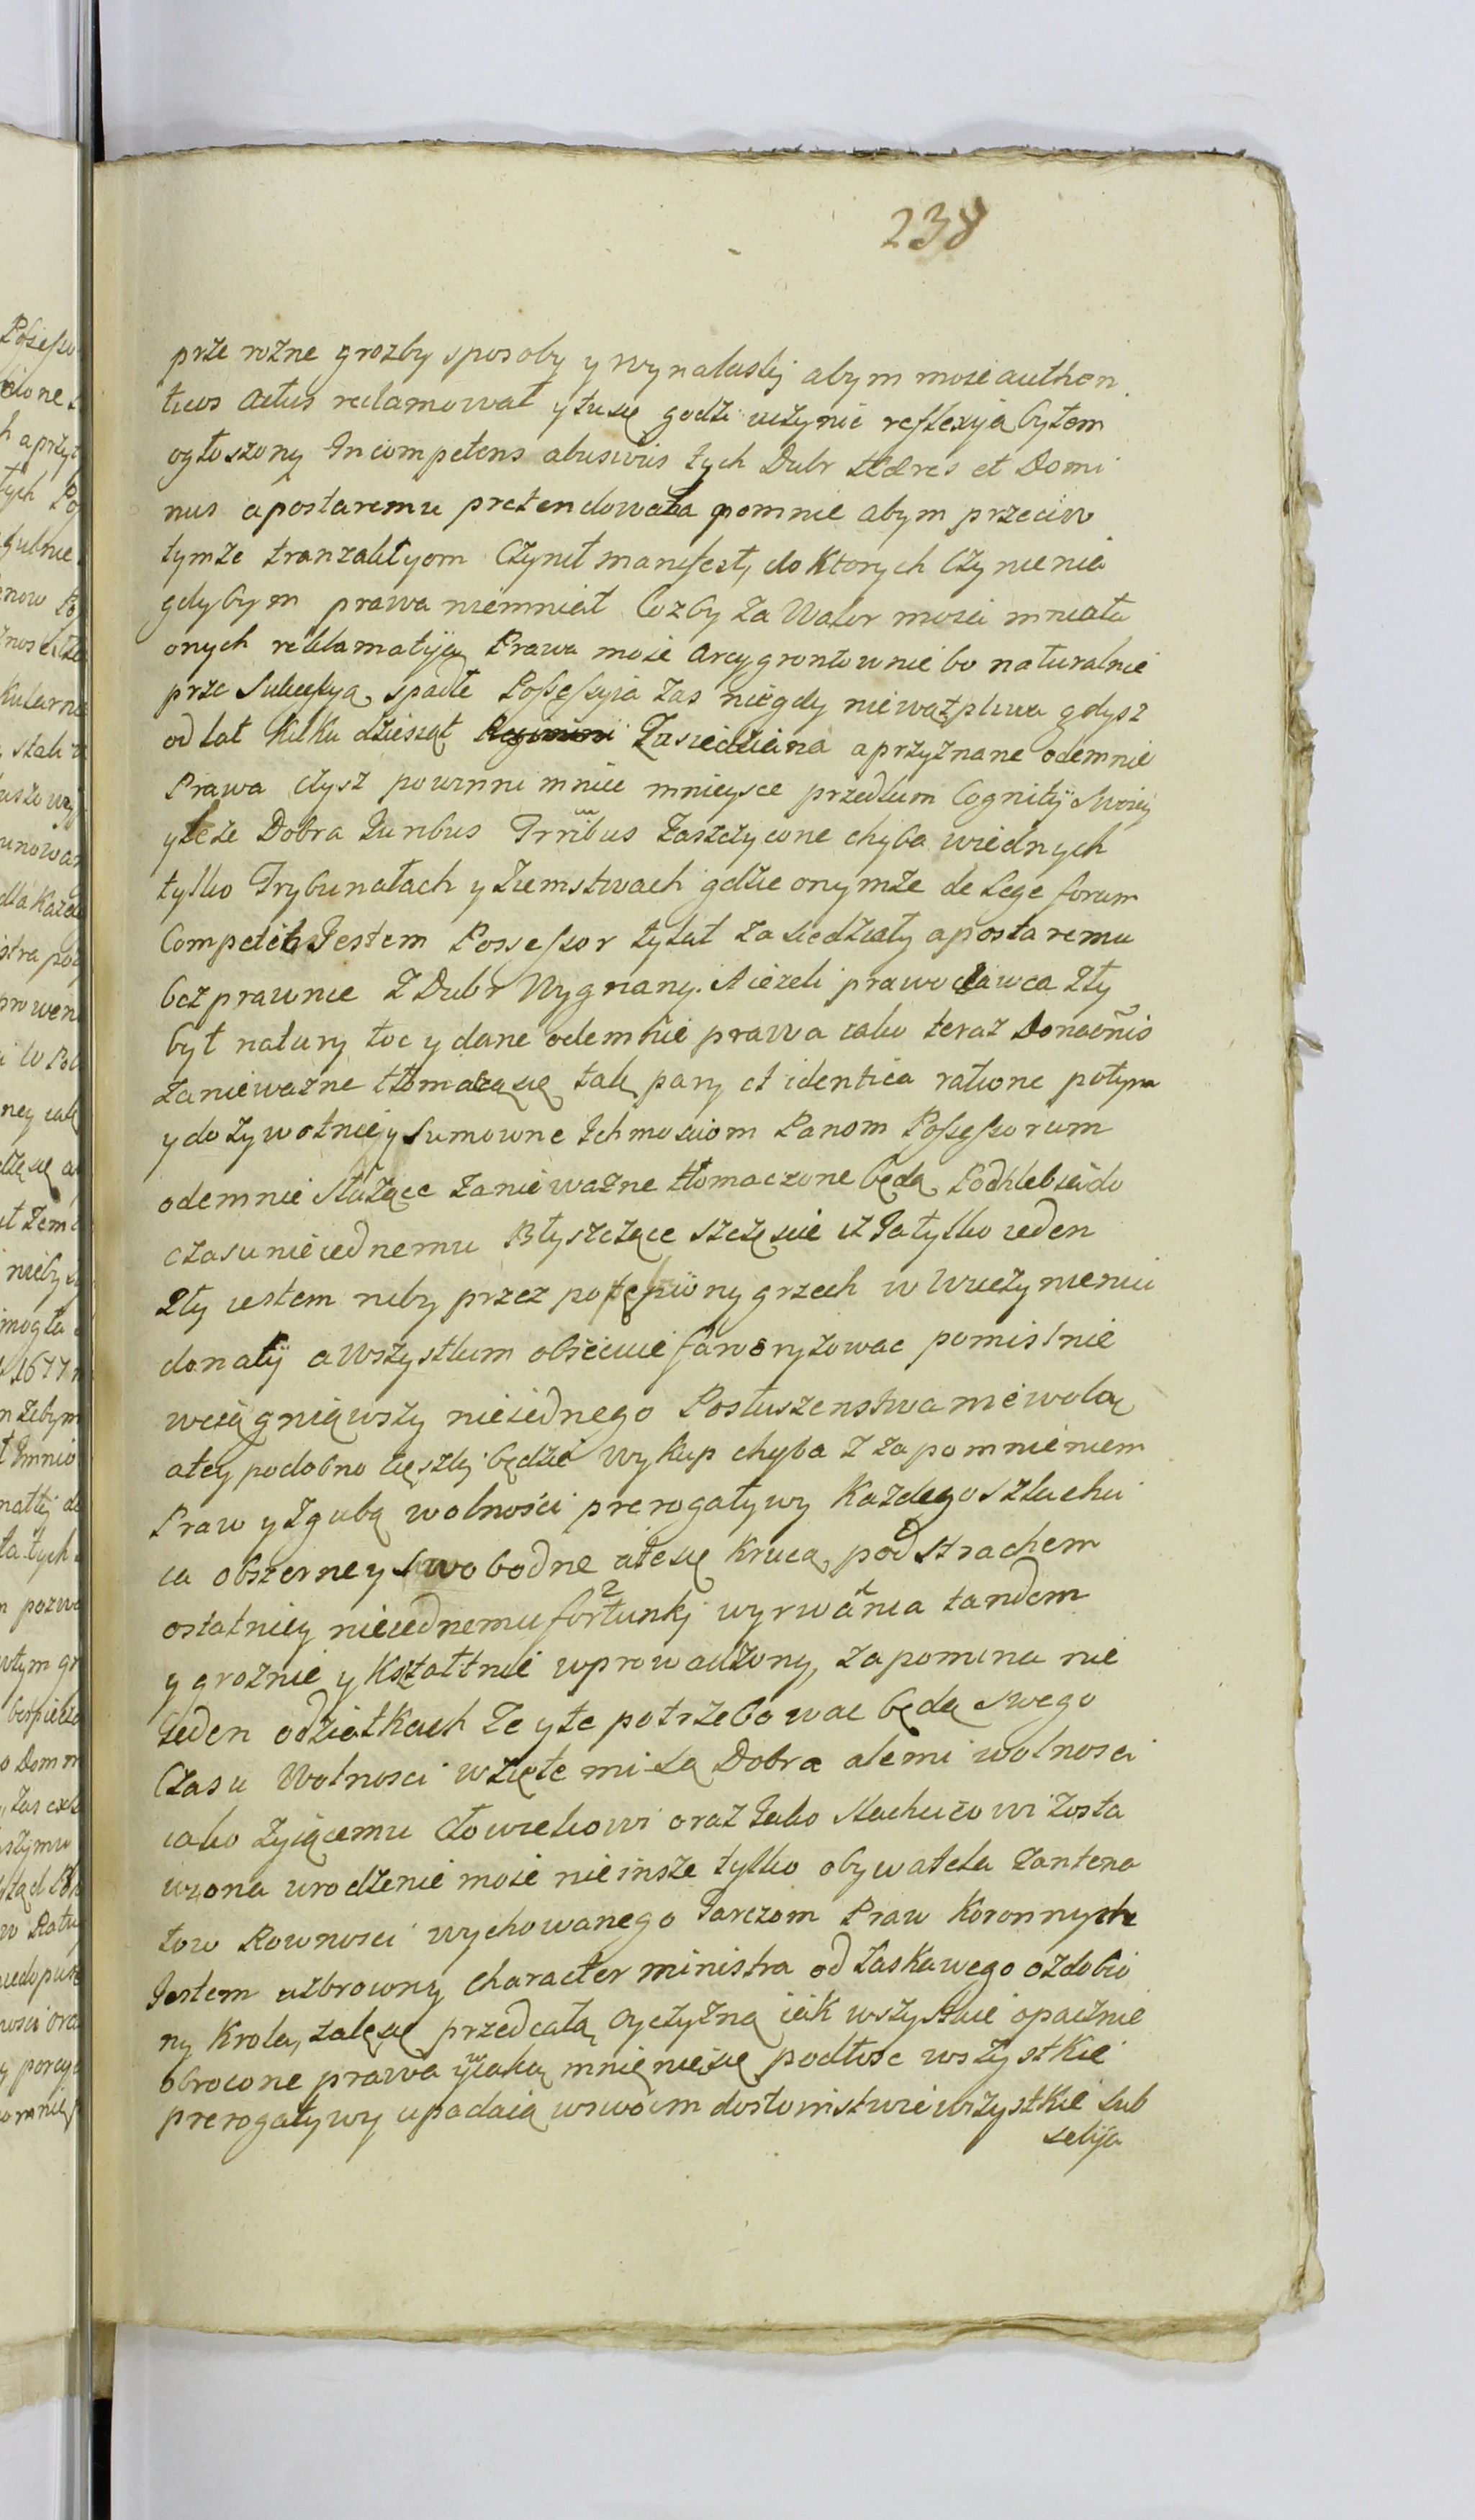 238
prze rozne grozby sposoby y wynalaski abym moie authen
ticos actus reclamował y tu się godzi uczynic reflexyią byłem
ogłoszony Incompetens abusivus tych Dobr Hæres et Domi
nus a postaremu pretendowała pomnie abym przeciw
tymze tranzakcyom Czynił manifesty do Ktorych Czynienia
gdybym prawa niemniał Cozby za Walor moia mniała
onych reklamatyją Prawa moie arcygrontownie bo naturalnie
prze Sukcessyą spadłe Possessyia zas nigdy niewątpliwa gdysz
od lat Kilku dziesiąt Zasiedziana a przyznane odemnie
Prawa czysz powinni mniec mnieysce przedtum Cognitij Swoiey
yteze Dobra Juribus Trribus Zaszczycone chyba wiednych
tylko Trybunałach y Ziemstwach gdzie onymże de Lege forum
Competit Jestem Possessor tylut zasiedziały apostaremu
bezprawnie Z Dobr Wygnany. A iezeli prawodawca Zły
był natury toc y dane odemnie prawa iako teraz Donaōnis
zaniewazne tłomaczą się tak pary et identica ratione potym
y dozywotniey Sumowne Ichmosciom Panom Possessorum
odemnie Służące zaniewazne tłomaczone będą Podchlebia do
czasu nieiednemu Błyszczące szczęscie iz Ja tylko ieden
Zły iestem niby przez popełniony grzech w Uczynieniu
donatij a Wszystkim obiecuie faworyzowac pomislnie
wciągniąwszy nieiednego Posłuszenstwa niewolą
a tey podobno cięszki będzie wykup chyba z zapomnieniem
Praw y Zgubą wolności prerogatywy Kazdego Szlachci
ca obszerney swobodne ate się Kruca, pod Strachem
ostatniey nieiednemu fortunki wyrwania tandem
y groznie y Kształtnie wprowadzony, zapomina nie
Jeden odziatkach Ze y te potrzebowac będą swego
Czasu Wolnosci wzięte mi są Dobra ale mi wolnosci
iako zyiącemu Człowiekowi oraz Jako Slachcicowi zosta
wiona urodzenie moie nieinsze tylko obywatela zantena
tow Rownosci wychowanego Tarczom Praw Koronnych
Jestem uzbroiony character ministra od łaskawego ozdobio
ny Krola, zalę się przed całą oyczyzną iak wszystkie opacznie
obrocone prawa y iaką mnie niesie podłosc wszystkie
prerogatywy upadaią wswoim dostoinstwie wszystkie sub
selija